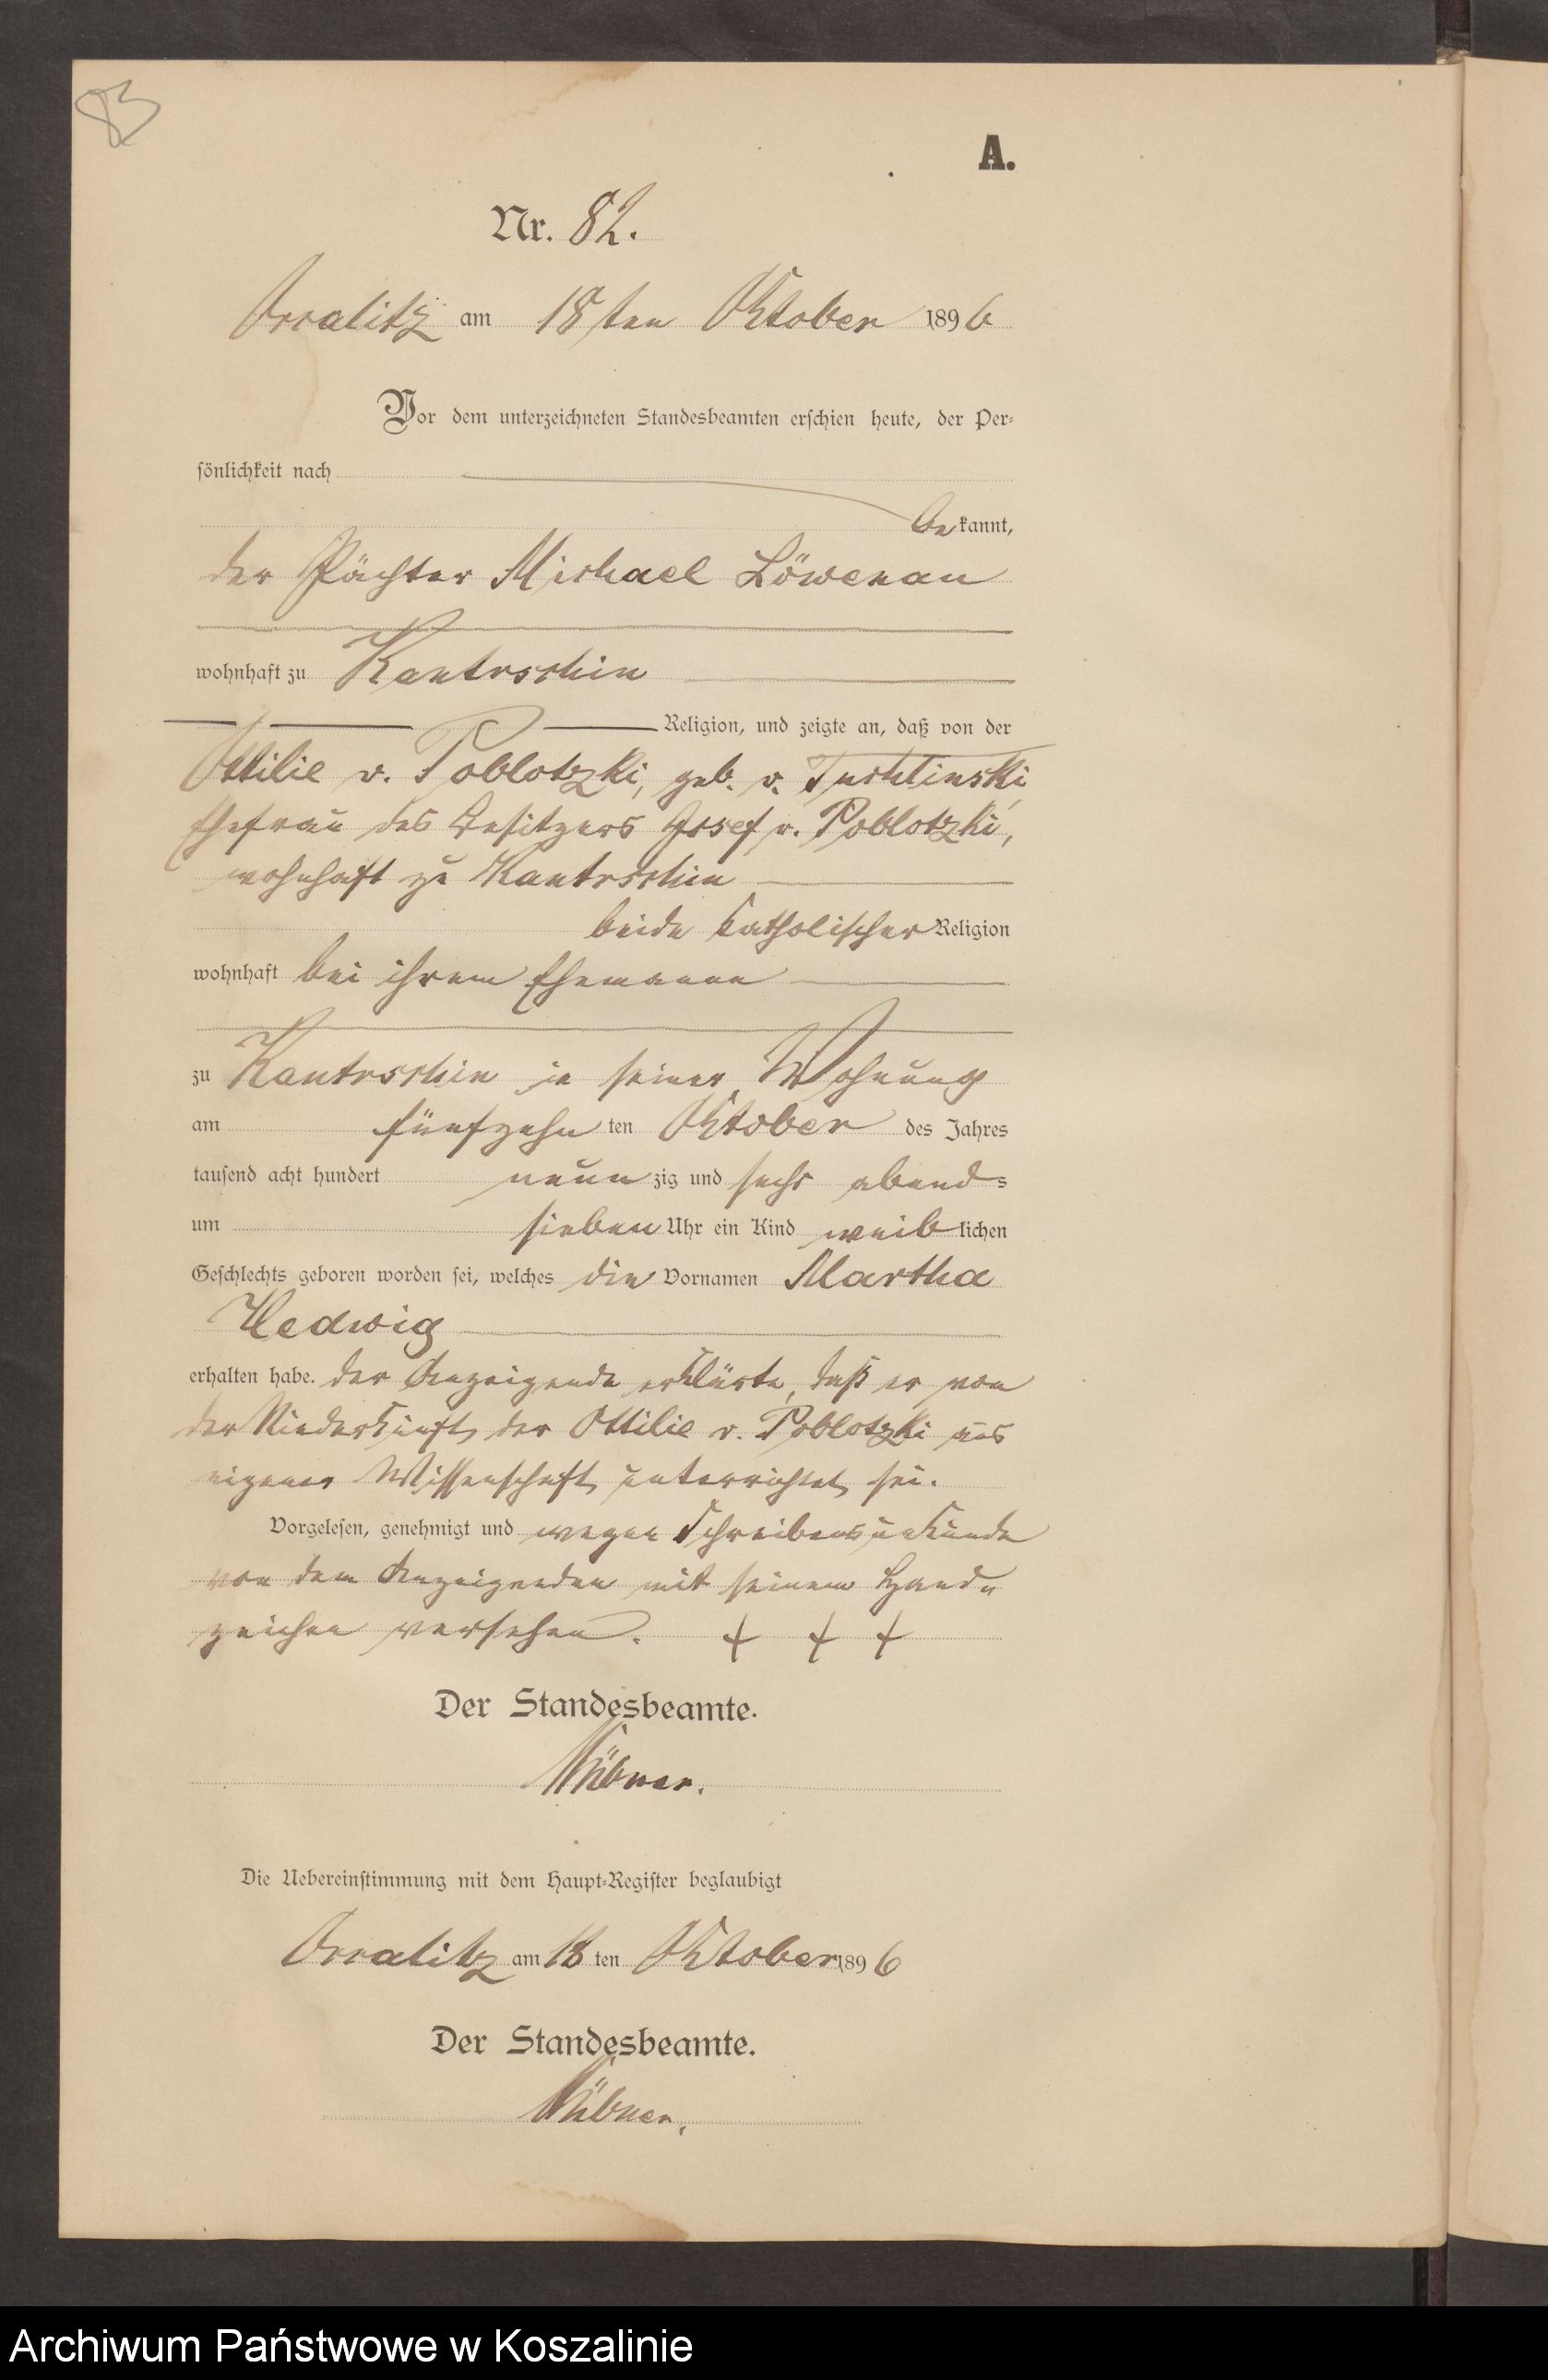 83
A.
Nr. 82.
am 18ten Oktober 1896
Vor dem unterzeichneten Standesbeamten erschien heute, der Per-
sönlichkeit nach
bekannt,
der Pächter Michael Löwenau
wohnhaft zu Kantrschin
Religion, und zeigte an, daß von der
Ottilie v. Poblotzki, geb. v.
Ehefrau des Besitzers Josef v. Poblotzki,
wohnhaft zu Kantrschin
beide katholischer Religion
wohnhaft bei ihrem Ehemanne
zu Kantrschin in seiner Wohnung
am fünfzehn ten Oktober des Jahres
tausend acht hundert neun zig und sechs abends
um sieben Uhr ein Kind weiblichen
Geschlechts geboren worden sei, welches die Vornamen Martha
Hedwig
erhalten habe. Der Anzeigende erklärte, daß er von
der Niederkunft der Ottilie v. Poblotzki aus
eigener Wissenschaft unterrichtet sei.
Vorgelesen, genehmigt und wegen Schreibensunkunde
von dem Anzeigenden mit seinem Hand-
zeichen versehen. + + +
Der Standesbeamte.
Die Uebereinstimmung mit dem Haupt-Register beglaubigt
am 18 ten Oktober 1896
Der Standesbeamte.
Archiwum Państwowe w Koszalinie